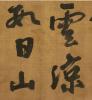 雲涼
冬日山